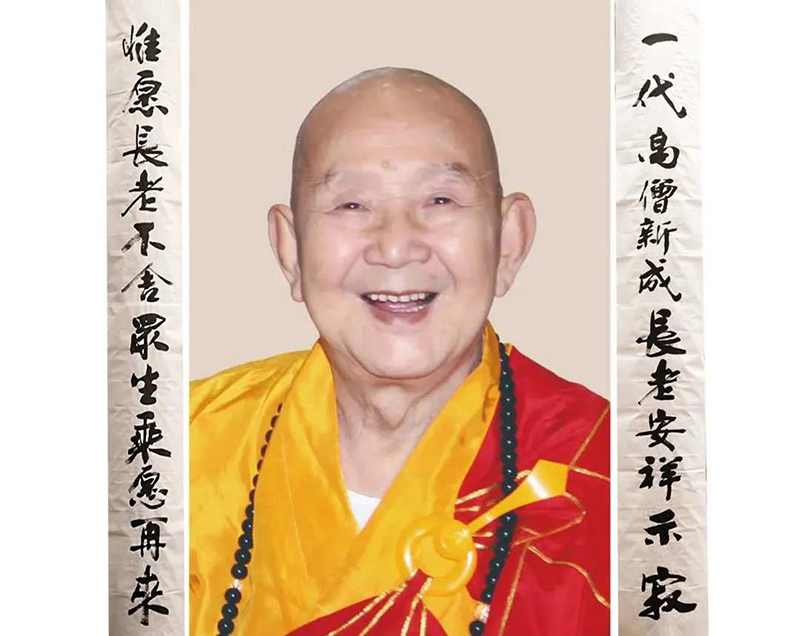 一代高僧新成長老安祥示寂
惟愿長老不舍眾生乘愿再來